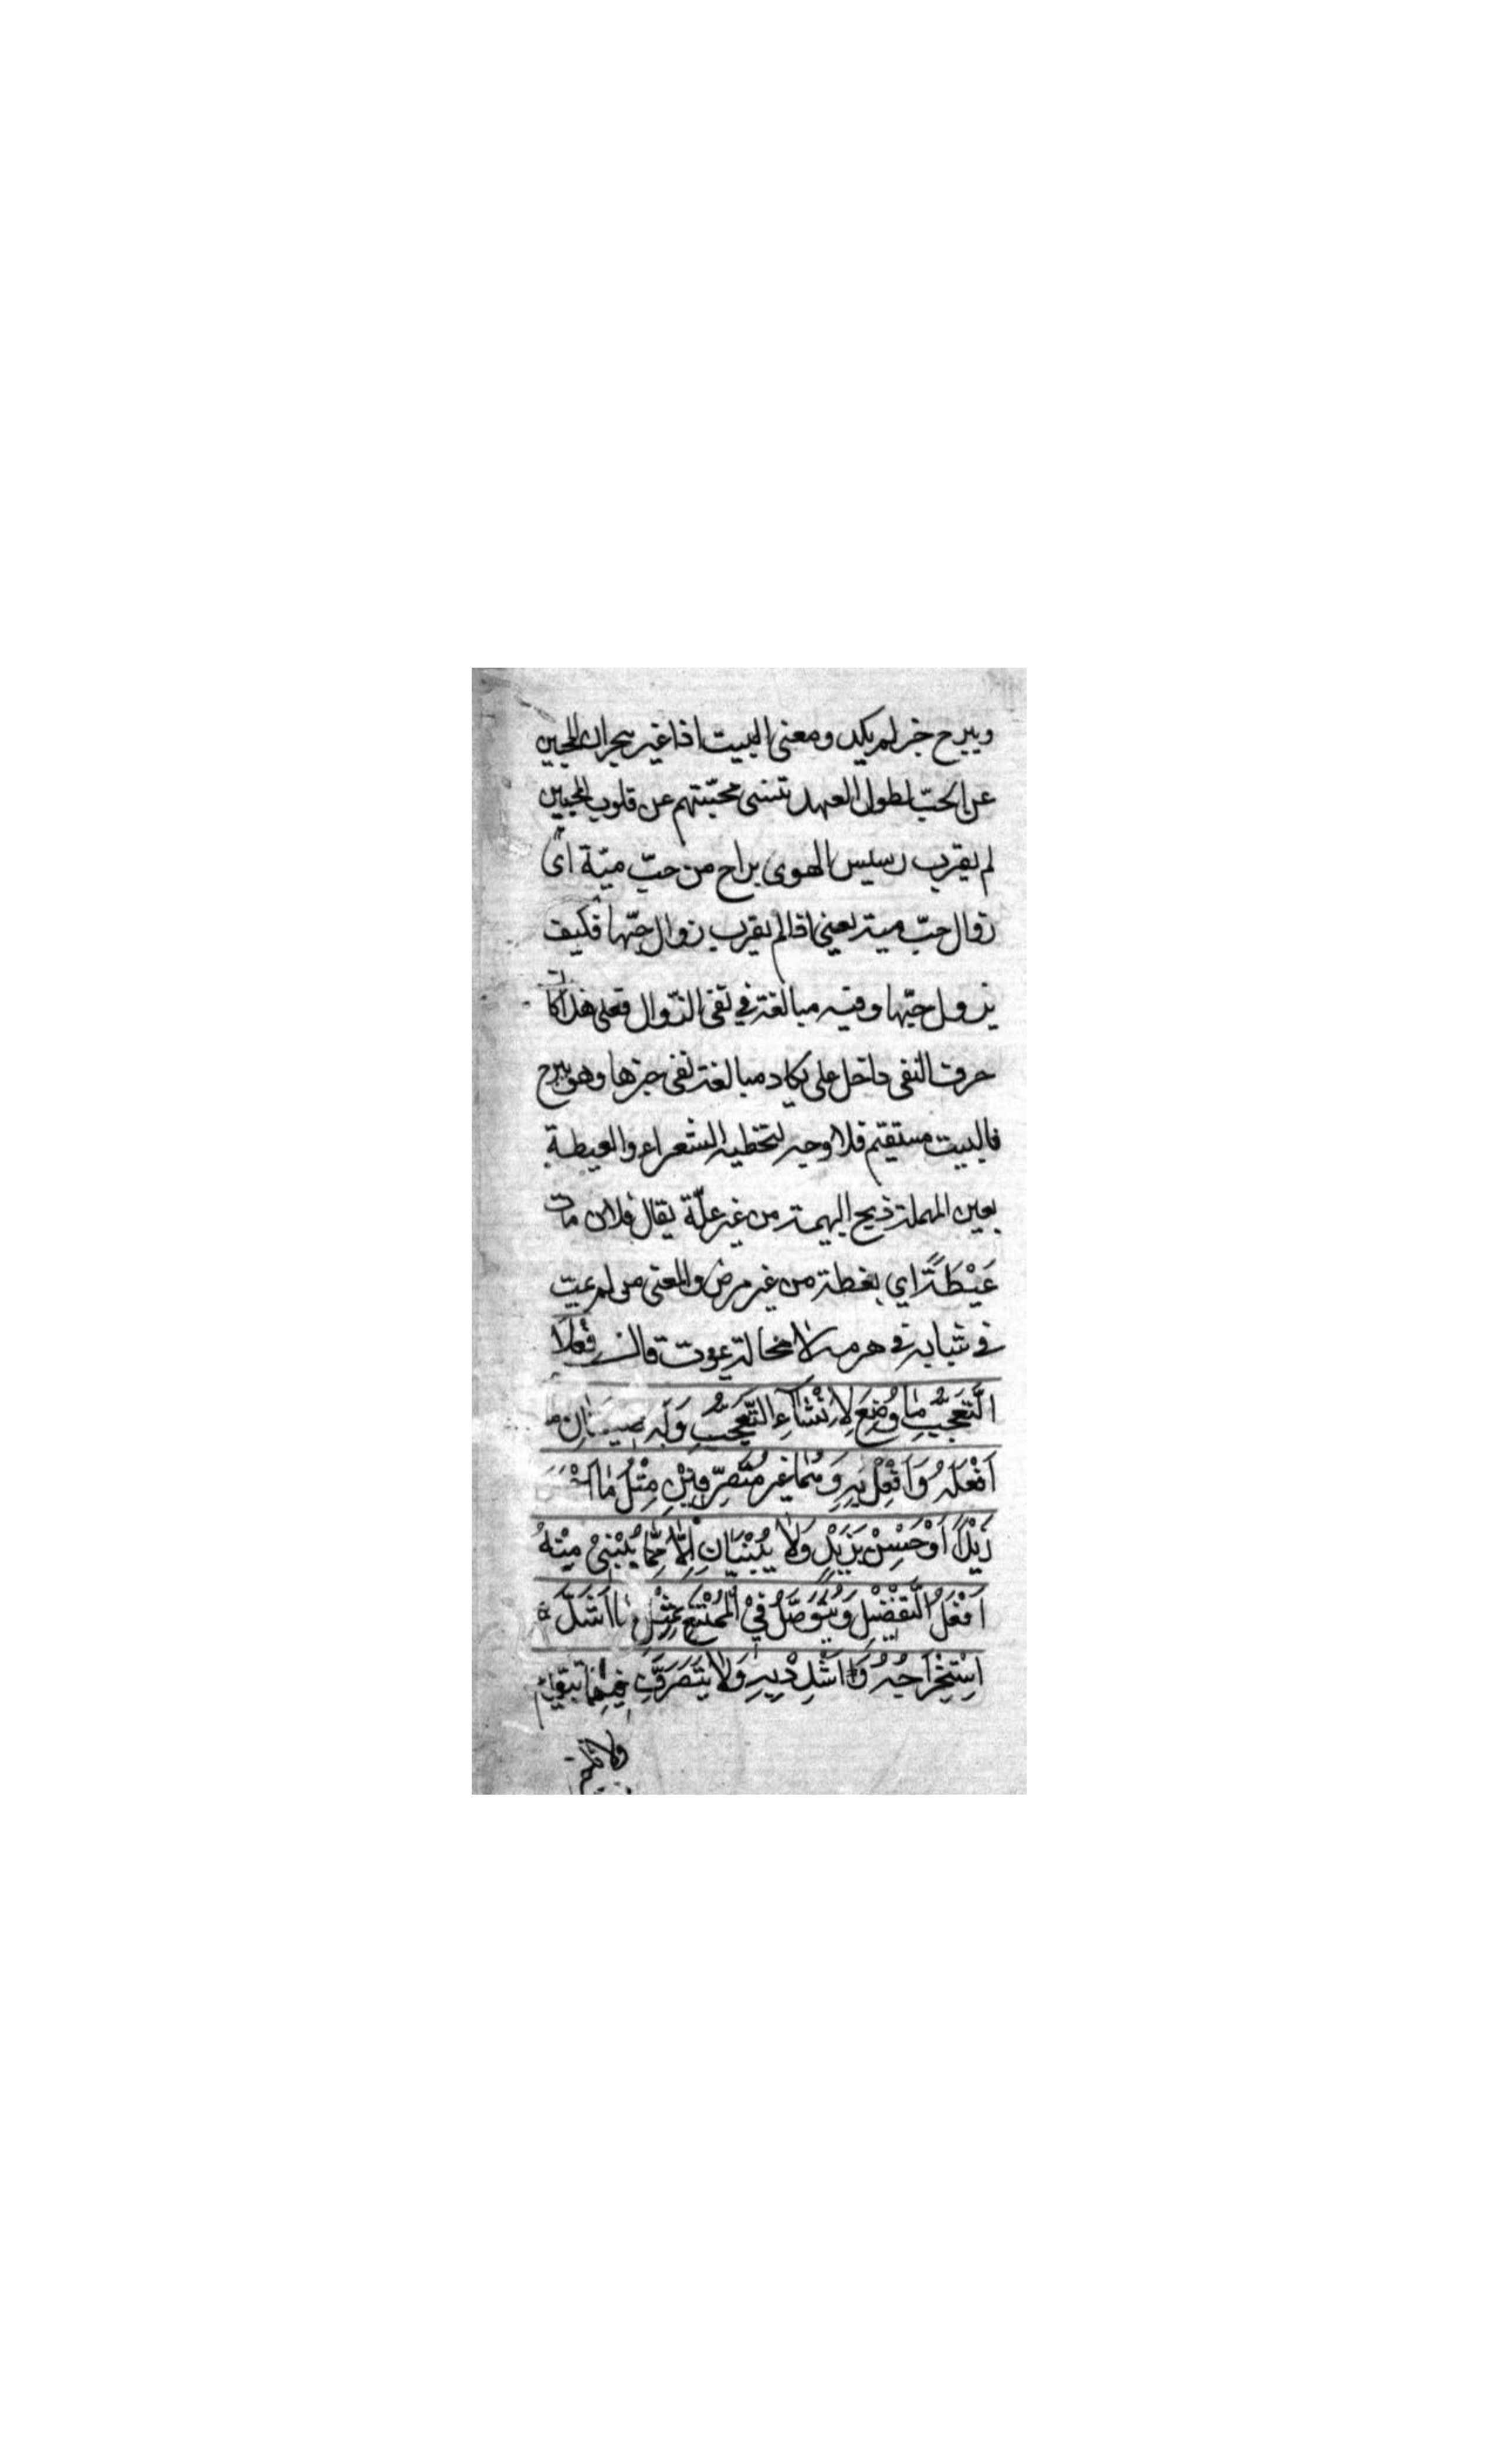 ويبرح خبر لم يكد ومعنى البيت اذا غير هجران المحبين
عن الحبّ لطول العهد تنسى محبّتهم عن قلوب المحبين
لم يقرب رسيس الهوى براح من حبّ ميّة اى
زوال حبّ مية يعني اذا لم يقرب زوال حبّها فكيف
يزول حبّها وفيه مبالغة في نفى الزّوال فعلى هذا كان
حرف النفى داخل على يكاد مبالغة نفى خبرها وهو يبرح
فالبيت مستقيم فلا وجه لتخطيه الشعراء والعيطة
بعين المهملة ذبح البهيمة من غير علّة يقال فلان مات
عَيْطَةً اي بغطة من غير مرض والمعنى من لم يمت
في شبابه في هرمه لا محالة يموت قال فِعْلَا
التَّعَجُّبِ مٰا وُضِعَ لِاِنْشَآءِ التَّعَجُّبِ وَلَه صيغتانِ ما
اَفْعَلَهُ وَاَفْعِلْ بِهِ وَهُمٰا غَيْر مُتَصَرِّفَيْنِ مِثْلُ مٰا اَحْسَنَ
زَيْدًا اَوْ حَسِنْ بِزَيْدٍ وَلٰا يُبْنَيٰانِ اِلّٰا مِمّٰا يُبْنىٰ مِنْهُ
اَفْعَلُ التَّفْضِيْلِ وَيُتَوَصَّلُ فِي الْمُمْتَنِعِ بِمِثْلِ مٰا اَشَدَّ
اِسْتِخْرٰاجُهُ وَاَشْدِدْ بِهِ وَلٰا يَتَصَرَّف فيهما بتقديم